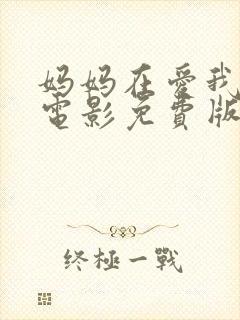 妈妈在爱我
電影免費版
终極一戰